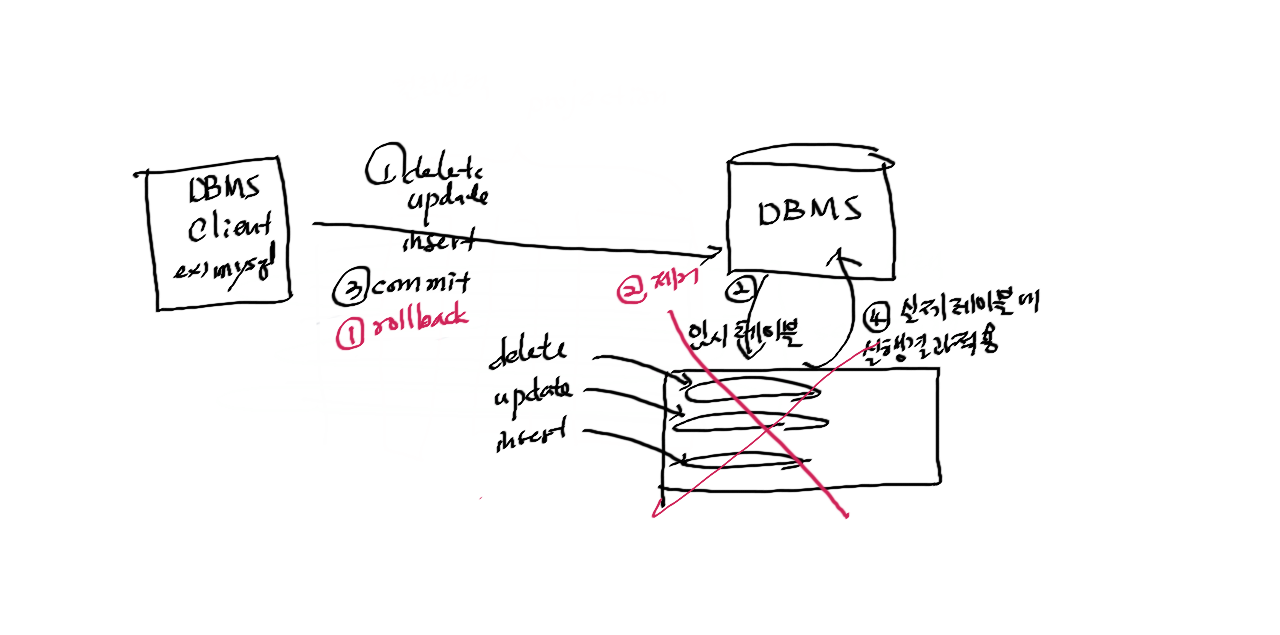 DBMS
Client
ex) mysql
① delete
update
insert
③ commit
① rollback
DBMS
② 제거
②
임시 테이블
④ 실제 테이블에
실행결과적용
delete
update
insert